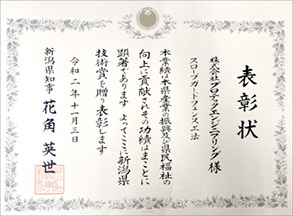 表彰状
株式会社プロテックエンジニアリング 様
スロープガードフェンス工法
本業績は本県産業の振興及び県民福祉の
向上に貢献されその功績はまことに
顕著であります よってここに新潟県
技術賞を贈り表彰します
令和二年十一月三日
新潟県知事 花角英世